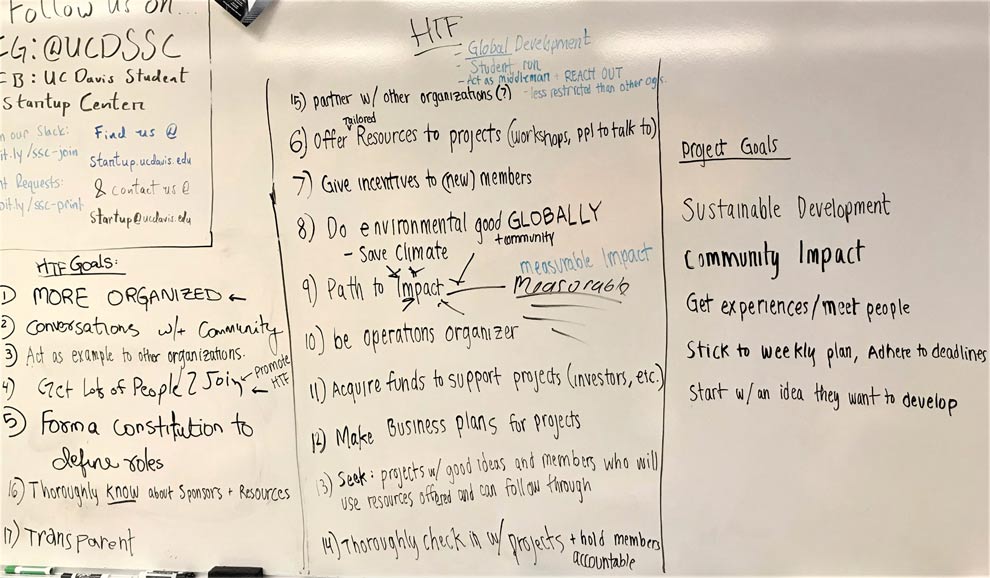 Follow us on...
IG: @UCDSSC
FB: UC Davis Student
Startup Center
our Slack:
bit.ly/ssc-join
Requests:
bit.ly/ssc-print
Find us @
startup.ucdavis.edu
& contact us @
startup@ucdavis.edu
HTF Goals:
1) MORE ORGANIZED ←
2) Conversations w/+ Community
3) Act as example to other organizations.
4) Get Lots of People 2 Join ← Promote HTF
5) Form a constitution to
define roles
16) Thoroughly know about Sponsors + Resources
17) Transparent
HTF
- Global Development
- Student run
- Act as middleman + REACH OUT
- less restricted than other orgs.
15) partner w/ other organizations (?)
6) Offer Tailored Resources to projects (workshops, ppl to talk to)
7) Give incentives to (new) members
8) Do environmental good GLOBALLY
+ community
- Save Climate
measurable Impact
9) Path to Impact — Measurable
10) be operations organizer
11) Acquire funds to support projects (investors, etc.)
12) Make Business plans for projects
13) Seek: projects w/ good ideas and members who will
use resources offered and can follow through
14) Thoroughly check in w/ projects + hold members
accountable
Project Goals
Sustainable Development
Community Impact
Get experiences/meet people
Stick to weekly plan, Adhere to deadlines
Start w/ an idea they want to develop